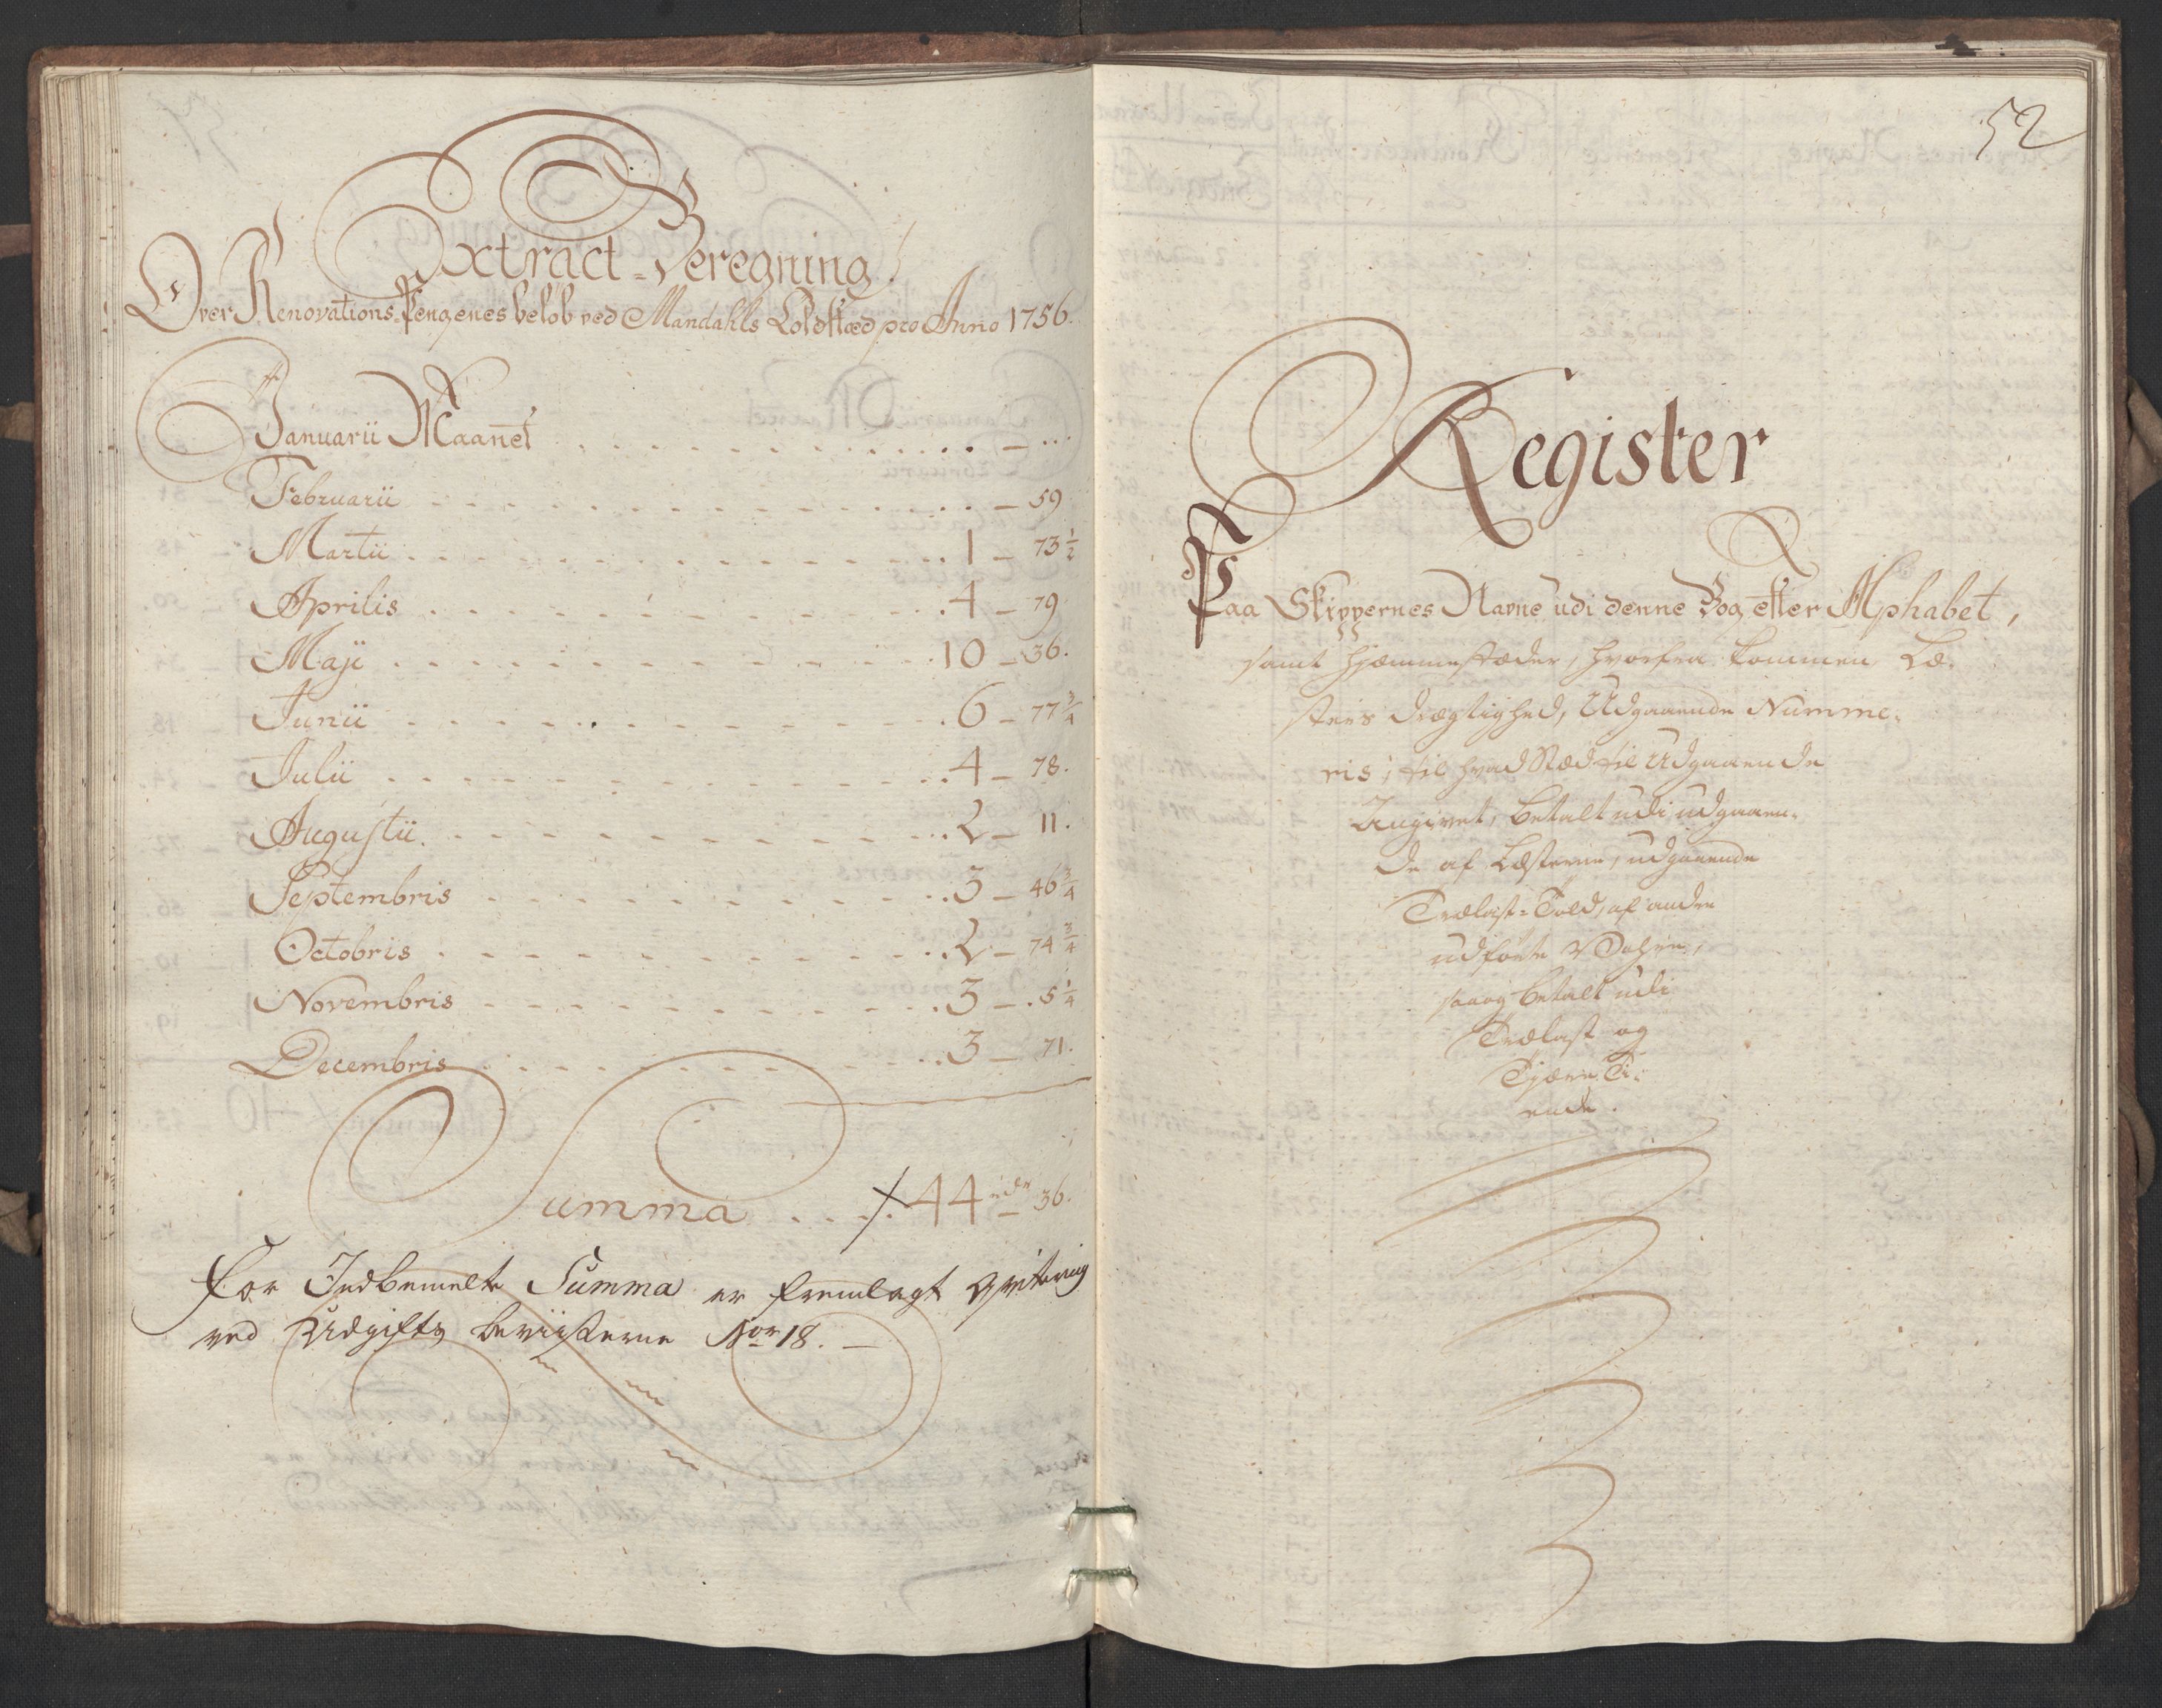 Extract-Beregning
Over Renovations-Pengenes beløb ved Mandahls Toldstæd pro Anno 1756.
Januarii Maanet . . . . . . – ...
Februarii . . . . . . – 59
Martii . . . . . . 1 – 73 1/2
Aprilis . . . . . . 4 – 79
Maji . . . . . . 10 – 36.
Junii . . . . . . 6 – 77 3/4
Julii . . . . . . 4 – 78.
Augustii . . . . . . 2 – 11.
Septembris . . . . . . 3 – 46 3/4
Octobris . . . . . . 2 – 74 3/4
Novembris . . . . . . 3 – 5 1/4
Decembris . . . . . . 3 – 71.
Summa . . . . 44 rdr 36.
For Indbemelte Summa er fremlagt Qvitering
ved Udgifts beviisterne No 18. –
52
Register
Paa Skippernes Navne udi denne Bog efter Alphabet,
samt hjemmestæder, hvorfra kommen, Læ-
sters drægtighed, Udgaaende Numme-
ris, til hvad Stæd til Udgaaende
Angivet, betalt udi udgaaen-
de af Læsterne, udgaaende
Trælast-Told, af andre
udførte Vahre,
saa og betalt udi
Trælast og
Tjære Ti-
ende.